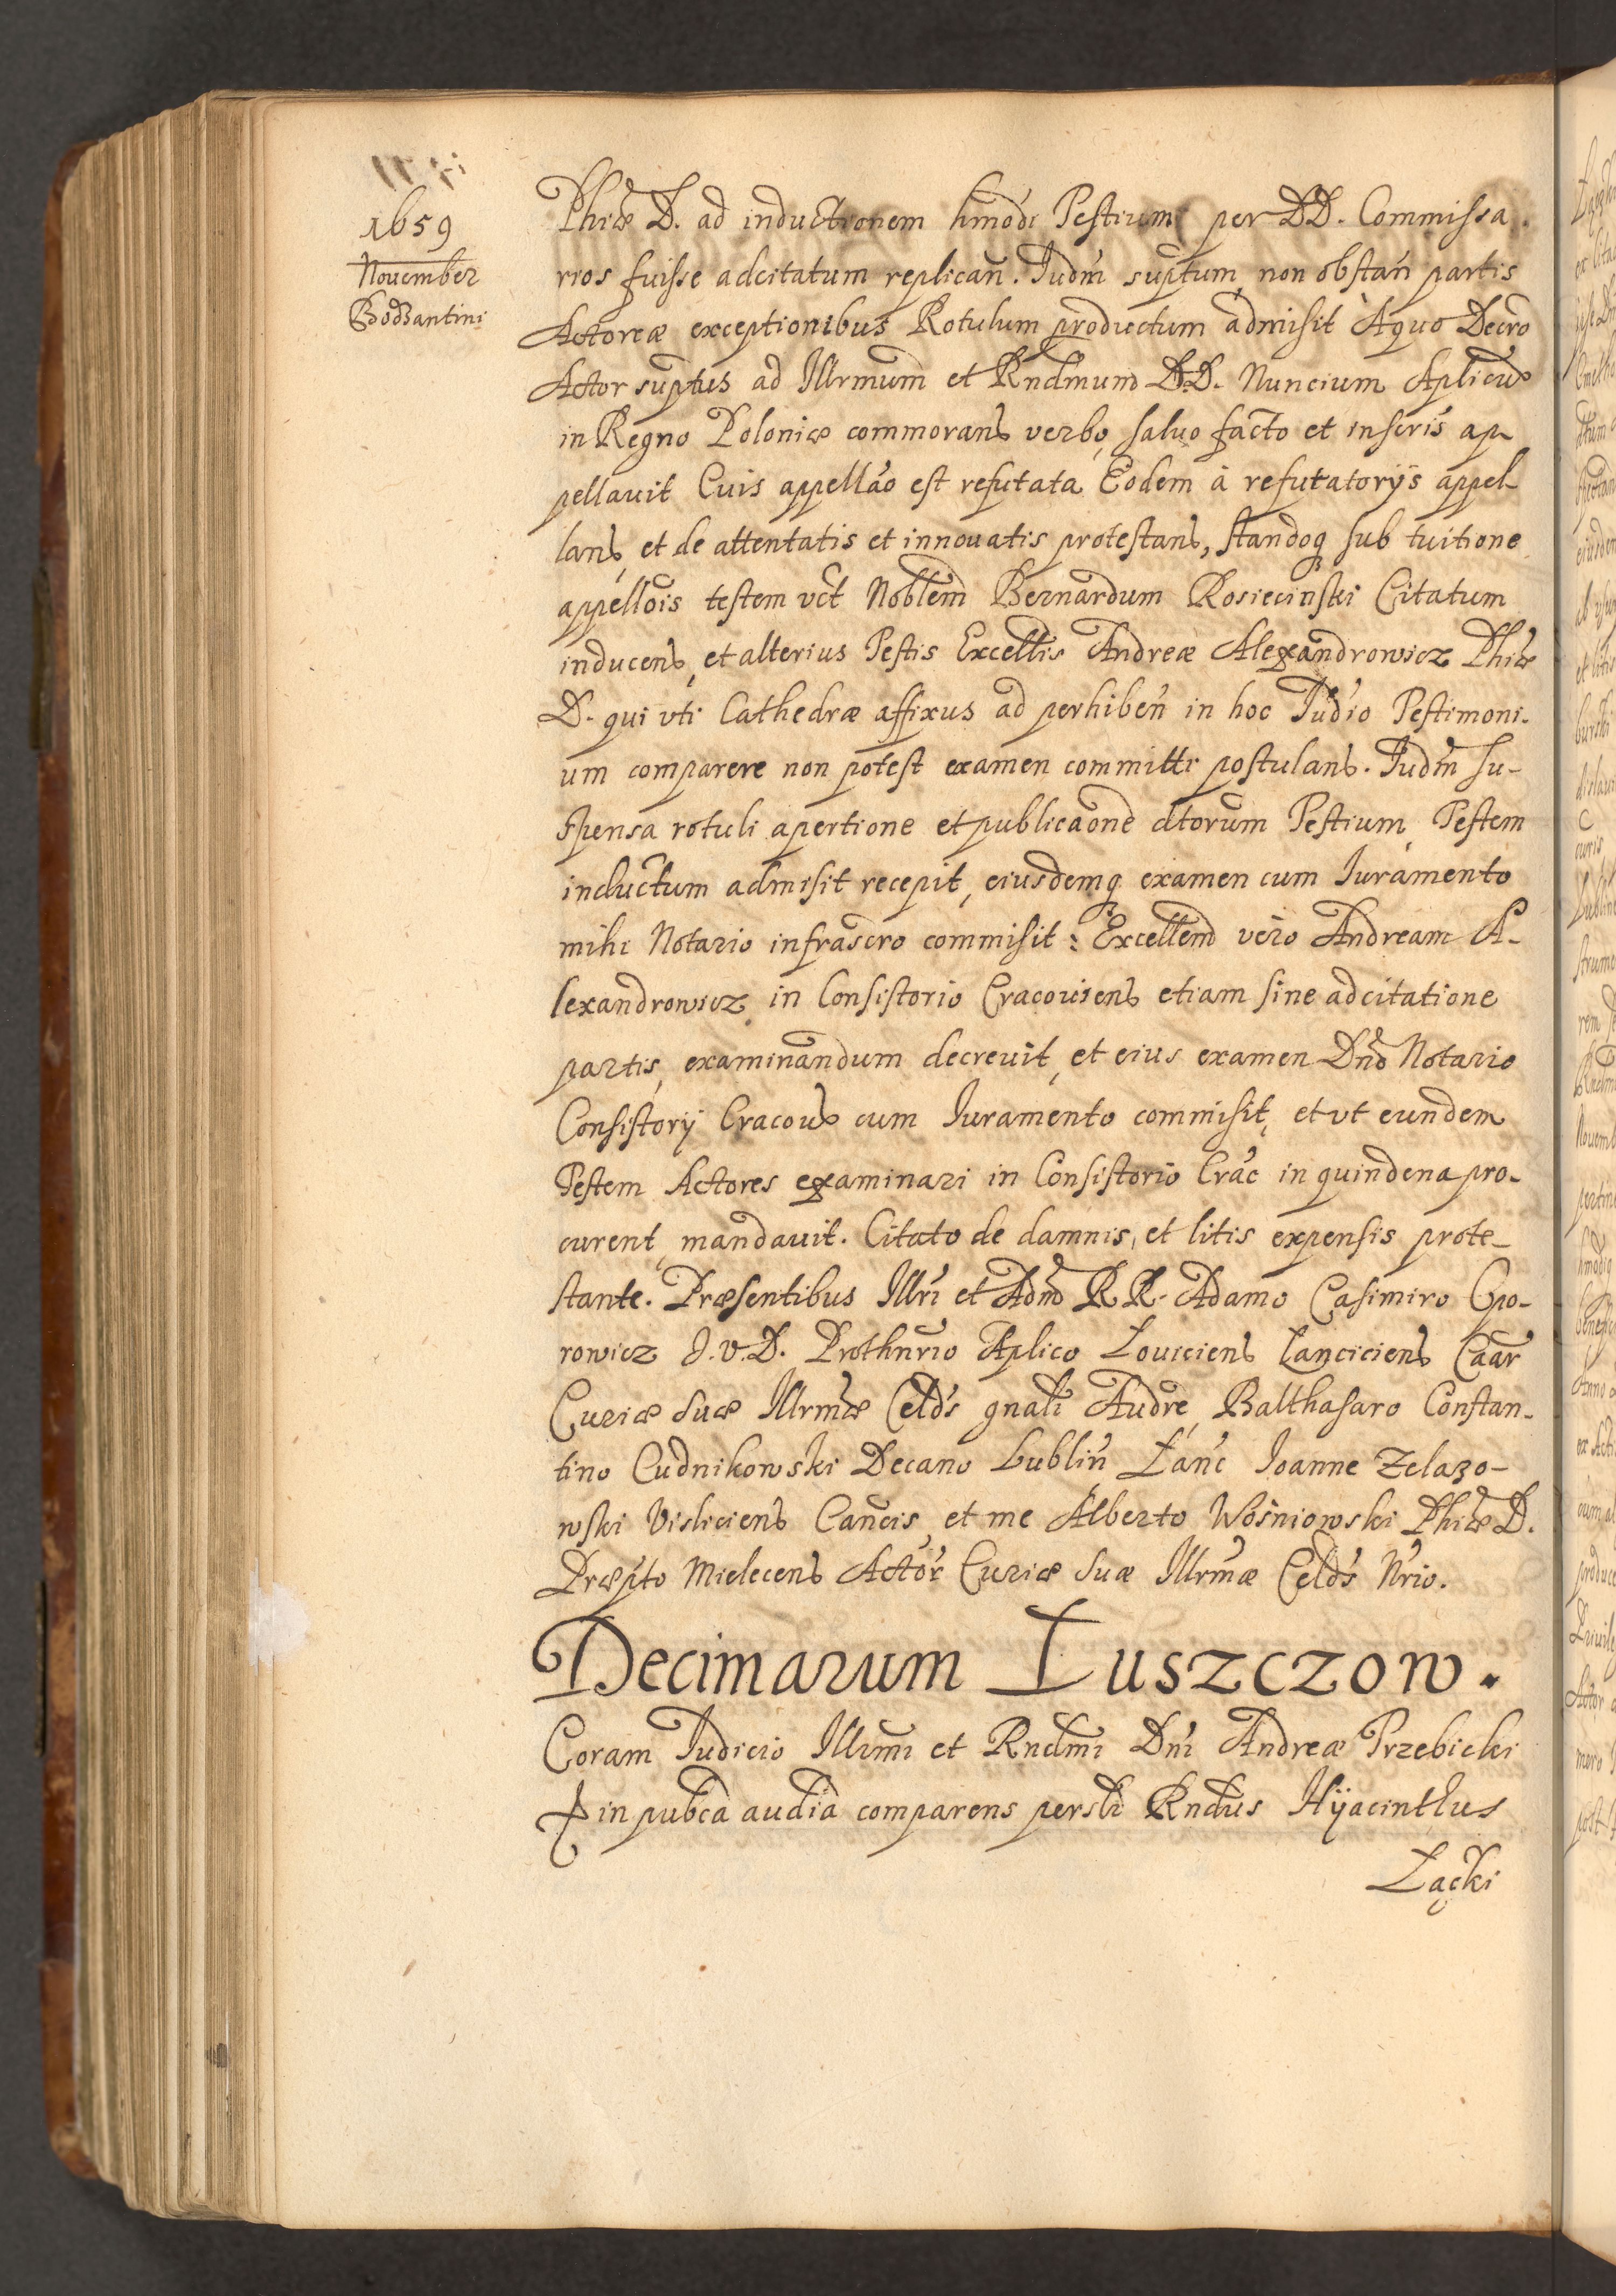 1659
Nouember
Bodzantini
Phiæ D. ad inductionem hmodi Testium per DD. Commissa.
rios fuisse adcitatum replican. Iudm suptum, non obstan partis
Actoreæ exceptionibus Rotulum productum admisit Aquo Decro
Actor suptus ad Illrmum et Rndmum DD. Nuncium Aplicu
in Regno Poloniæ commorans verbo, saluo facto et inscris ap-
pellauit Cuis appellao est refutata Eodem à refutatorijs appel-
lans, et de attentatis et innouatis protestans, standoq sub tuitione
appellois testem vct Noblem Bernardum Rosiecinski Citatum
inducens, et alterius Testis Excellis Andreæ Alexandrowicz Phiæ
D. qui vti Cathedræ affixus ad perhiben in hoc Iudio Testimoni-
um comparere non potest examen committi postulans. Iudm su-
spensa rotuli apertione et publicaone dtorum Testium, Testem
inductum admisit recepit, eiusdemq examen cum Iuramento
mihi Notario infrascro commisit: Excellem vero Andream A-
lexandrowicz in Consistorio Cracouiens etiam sine adcitatione
partis, examinandum decreuit, et eius examen Dno Notario
Consistorij Cracou cum Iuramento commisit, et vt eundem
Testem Actores examinari in Consistorio Crac in quindena pro-
curent, mandauit. Citato de damnis, et litis expensis prote-
stante. Præsentibus Illri et Adm RR. Adamo Casimiro Opo-
rowicz I.V.D. Prothnrio Aplico Louiciens Lanciciens Caar
Curiæ suæ Illrmæ Celds gnali Audre, Balthasaro Constan-
tino Cudnikowski Decano Lublin Łanc Ioanne Zelazo-
wski Visliciens Cancis, et me Alberto Wośniowski Phiæ D.
Præpto Mielecens Actor Curiæ suæ Illrmæ Celds Nrio.
Decimarum Łuszczow.
Coram Iudicio Illrmi et Rndmi Dni Andreæ Trzebicki
in pubca audia comparens persli Rndus Hyacinthus
Łącki